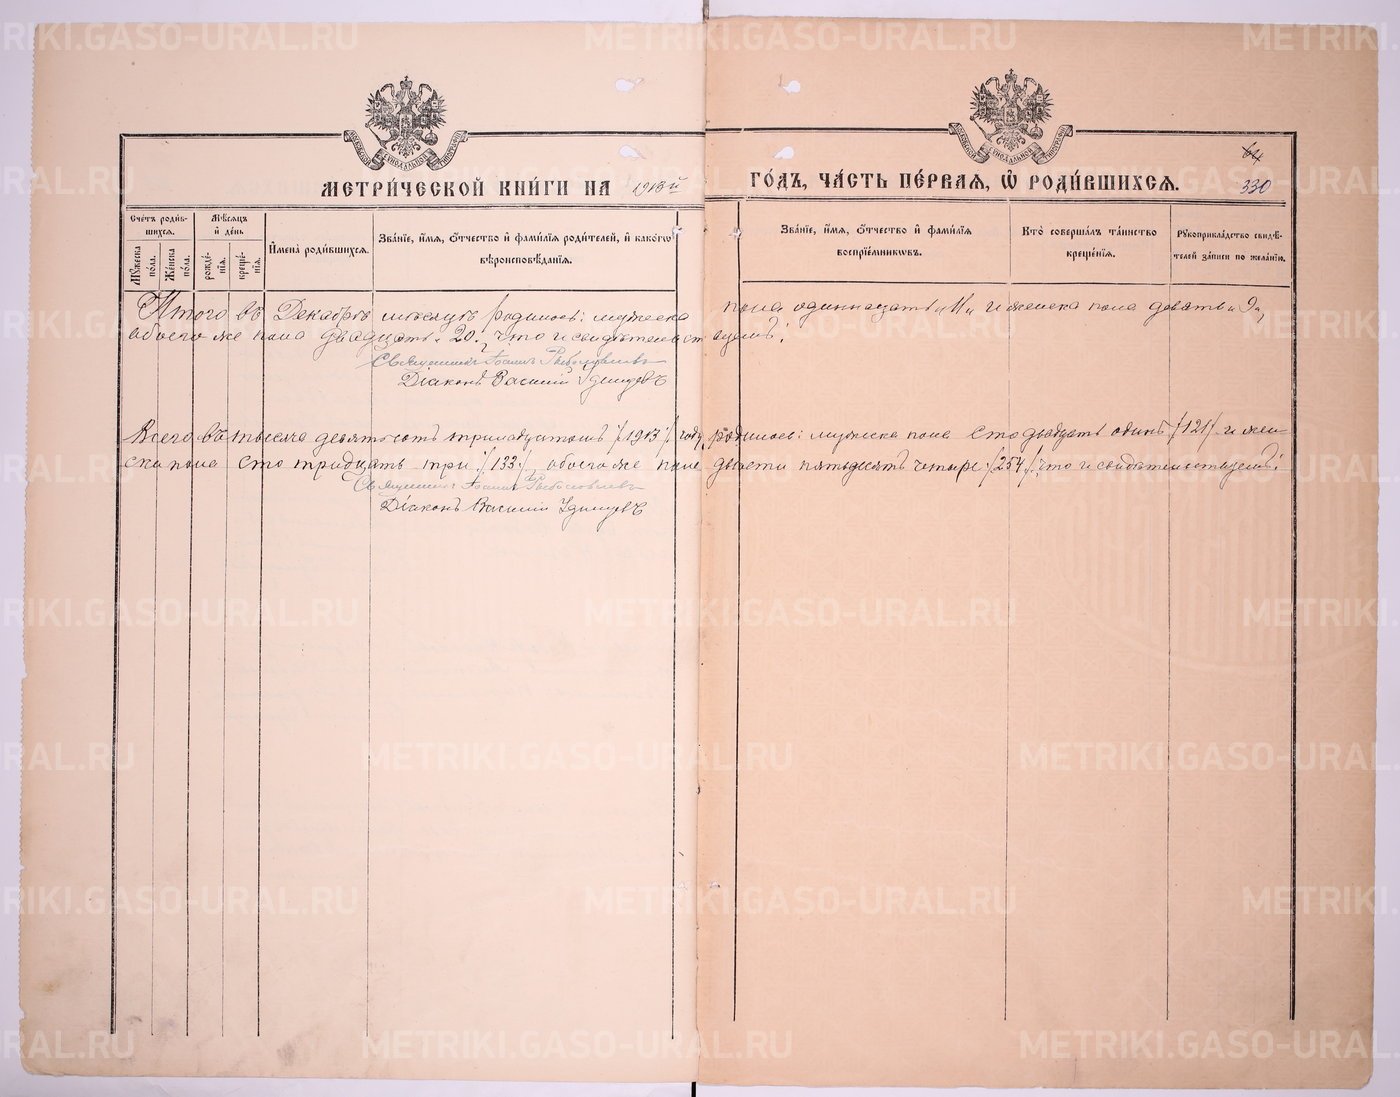 МЕТРИ́ЧЕСКОЙ КНИ́ГИ НА 1913й ГО́ДЪ, ЧА́СТЬ ПЕ́РВАЯ, Ѡ҆ РОДИ́ВШИХСЯ.
64
330
Сче́тъ роди́вшихся.
Му́жеска по́ла.
Же́нска по́ла.
Мѣ́сяцъ и҆ де́нь
рожде́нїя.
креще́нїя.
И҆мена̀ роди́вшихся.
Зва́нїе, и҆́мя, ѻ҆́тчество и҆ фами́лїя роди́телей, и҆ како́гѡ вѣроисповѣ́данїя.
Зва́нїе, и҆́мя, ѻ҆́тчество и҆ фами́лїя воспрїе́мниковъ.
Кто̀ соверша́лъ та́инство креще́нїя.
Рукоприкла́дство свидѣ́телей за́писи по жела́нїю.
Итого въ Декабрѣ мѣсяцѣ родилось: мужеска пола одиннадцать „11„ и женска пола девять „9„,
обоего же пола двадцать „20„, что и свидѣтельствуемъ:
Священникъ Іоаннъ
Діаконъ Василій Удинцевъ
Всего въ тысяча девятьсотъ тринадцатомъ /1913/ году родилось: мужеска пола сто двадцать одинъ /121/ и жен-
ска пола сто тридцать три /133/, обоего же пола двѣсти пятьдесятъ четыре /254/, что и свидѣтельствуемъ:
Священникъ Іоаннъ
Діаконъ Василій Удинцевъ
METRIKI.GASO-URAL.RU